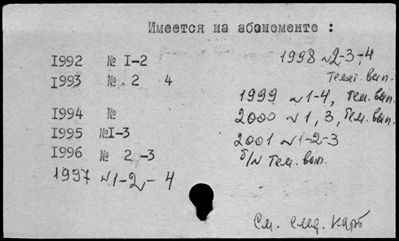 Имеется на абонементе :
1992 № I-2
1993 № 2 4
1994 №
1995 №I-3
1996 № 2 -3
1997 №1-2, - 4
1998 №2-3,-4
Темат. вып.
1999 №1-4, Тем. вып.
2000 №1, 3, Тем. вып.
2001 №1-2-3
б/№ Тем. вып.
См. след. карт